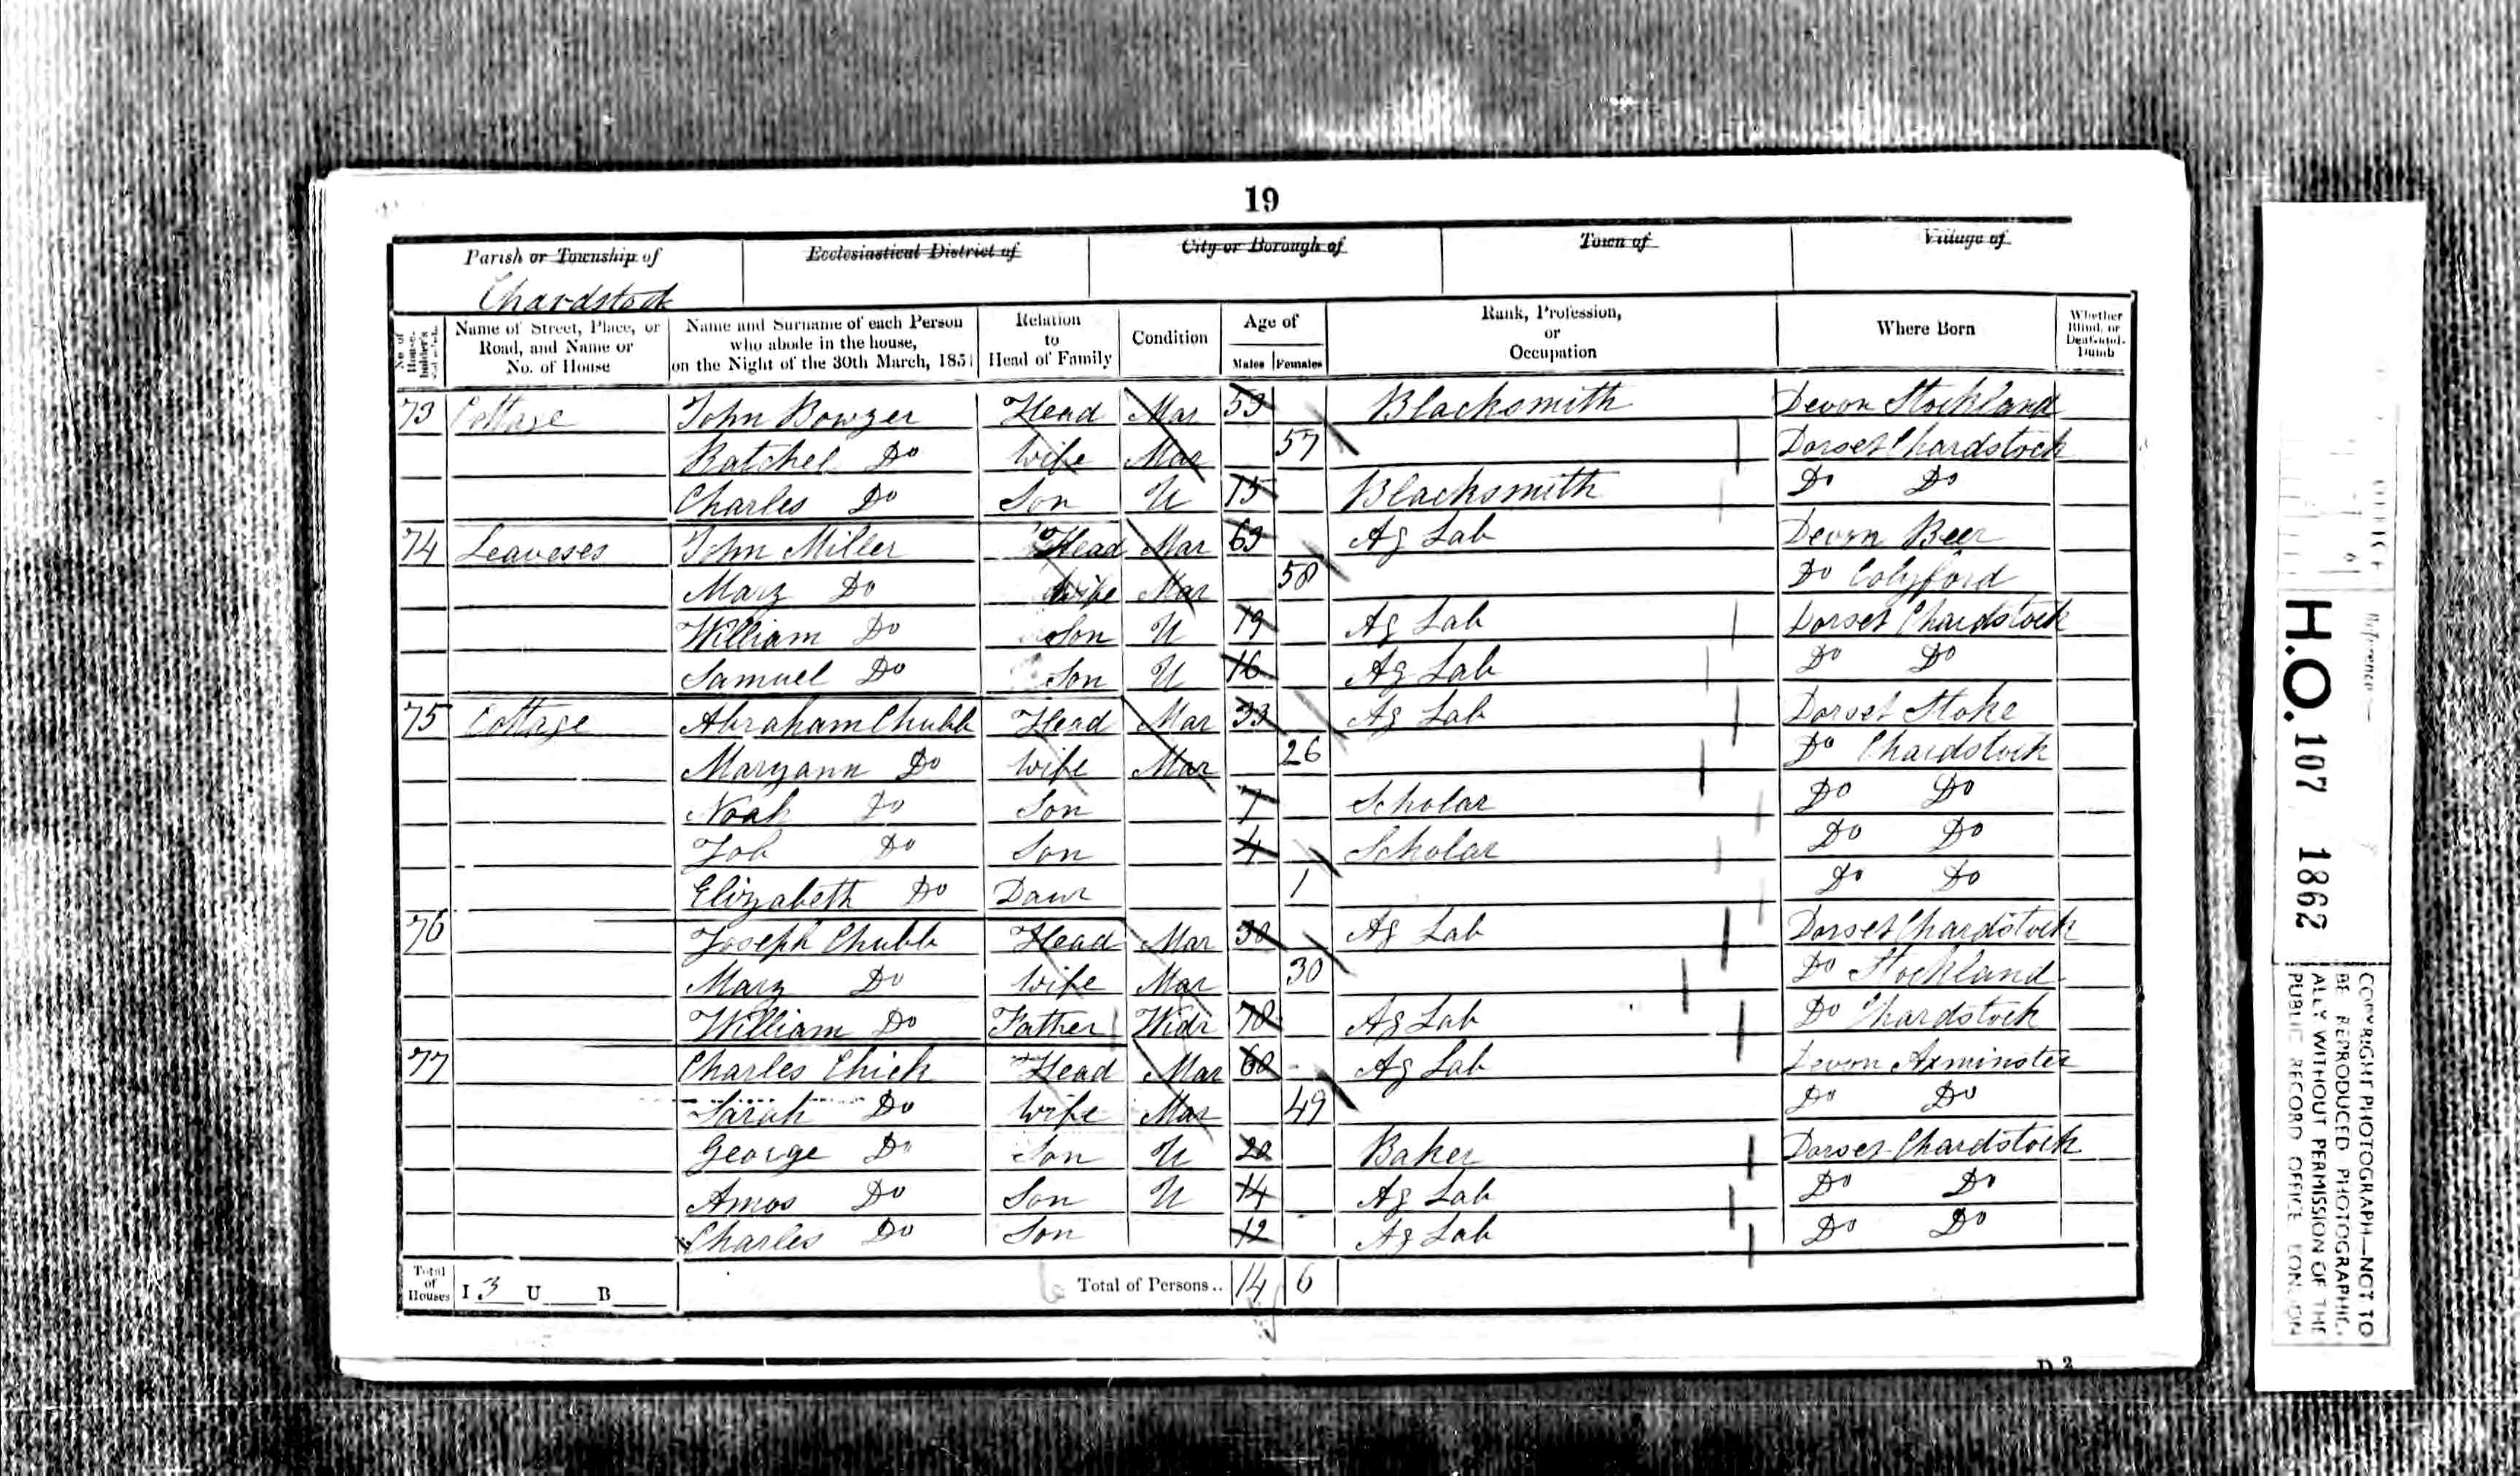 19
Parish or Township of
Ecclesiastical District of
City or Borough of
Town of
Village of
Chardstock
No. of House-holder's
Name of Street, Place, or Road, and Name or No. of House
Name and Surname of each Person who abode in the house, on the Night of the 30th March, 1851
Relation to Head of Family
Condition
Age of
Males Females
Rank, Profession, or Occupation
Where Born
Whether Blind, or Deaf-and-Dumb
73 Cottage John Bowzer Head Mar 53 Blacksmith Devon Stockland
Ratchel Do Wife Mar 57 Dorset Chardstock
Charles Do Son U 15 Blacksmith Do Do
74 Leaveses John Miller Head Mar 63 Ag Lab Devon Beer
Mary Do Wife Mar 58 Do Colyford
William Do Son U 19 Ag Lab Dorset Chardstock
Samuel Do Son U 16 Ag Lab Do Do
75 Cottage Abraham Chubb Head Mar 33 Ag Lab Dorset Stoke
Maryann Do Wife Mar 26 Do Chardstock
Noah Do Son 7 Scholar Do Do
Job Do Son 4 Scholar Do Do
Elizabeth Do Daur 1 Do Do
76 Joseph Chubb Head Mar 38 Ag Lab Dorset Chardstock
Mary Do Wife Mar 30 Do Stockland
William Do Father Widr 78 Ag Lab Do Chardstock
77 Charles Chick Head Mar 60 Ag Lab Devon Axminster
Sarah Do Wife Mar 49 Do Do
George Do Son U 20 Baker Dorset Chardstock
Amos Do Son U 14 Ag Lab Do Do
Charles Do Son 12 Ag Lab Do Do
Total of Houses I 3 U B Total of Persons.. 14 6
D 2
Reference
H.O. 107 1862
COPYRIGHT PHOTOGRAPH—NOT TO
BE REPRODUCED PHOTOGRAPHIC-
ALLY WITHOUT PERMISSION OF THE
PUBLIC RECORD OFFICE LONDON